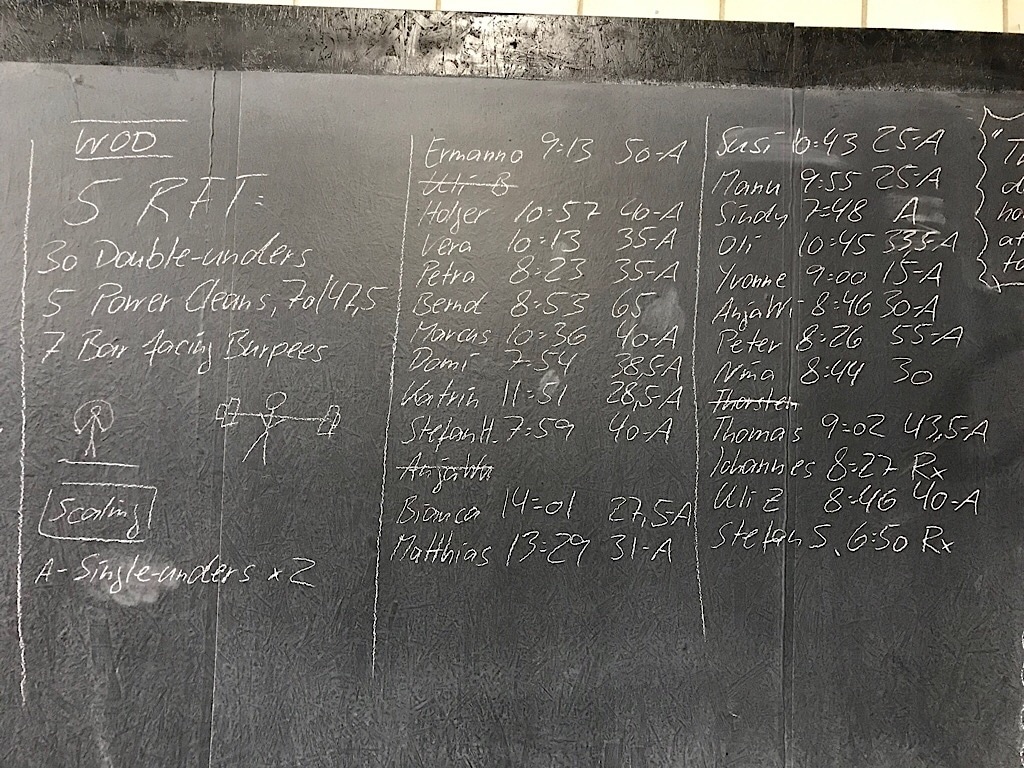 WOD
5 RFT:
30 Double-unders
5 Power Cleans, 70/47,5
7 Bar facing Burpees
Scaling
A- Single-unders x 2
Ermanno 9:13 50-A
Uli B
Holger 10:57 40-A
Vera 10:13 35-A
Petra 8:23 35-A
Bernd 8:53 65
Marcus 10:36 40-A
Domi 7:54 38,5-A
Katrin 11:51 28,5-A
Stefan H. 7:59 40-A
Bianca 14:01 27,5-A
Matthias 13:29 31-A
Susi 10:43 25-A
Manu 9:55 25-A
Sindy 7:48 A
Oli 10:45 33,5-A
Yvonne 9:00 15-A
Anja Wi 8:46 30-A
Peter 8:26 55-A
8:44 30
Thorsten
Thomas 9:02 43,5-A
Johannes 8:27 Rx
Uli Z 8:46 40-A
Stefan S. 6:50 Rx